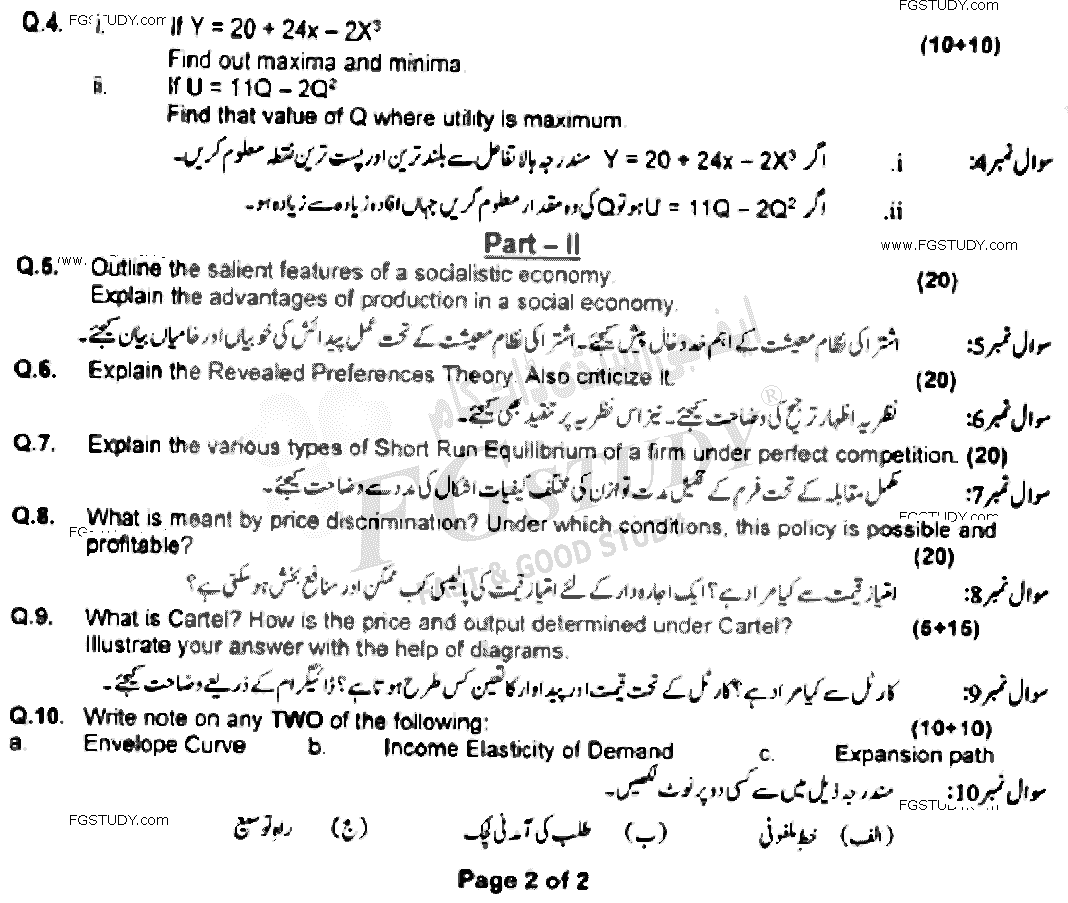 FGSTUDY.com
Q.4. FGSTUDY.com i. If Y = 20 + 24x – 2X³ (10+10)
Find out maxima and minima.
ii. If U = 11Q – 2Q²
Find that value of Q where utility is maximum.
سوال نمبر4: i. اگر Y = 20 + 24x – 2X³ مندرجہ بالا تفاعل سے بلند ترین اور پست ترین نقطہ معلوم کریں۔
ii. اگر U = 11Q – 2Q² ہو تو Q کی وہ مقدار معلوم کریں جہاں افادہ زیادہ سے زیادہ ہو۔
Part – II
www.FGSTUDY.com
Q.5. www. Outline the salient features of a socialistic economy. (20)
Explain the advantages of production in a social economy.
سوال نمبر5: اشتراکی نظام معیشت کے اہم خدوخال پیش کیجئے۔ اشتراکی نظام معیشت کے تحت عمل پیدائش کی خوبیاں اور خامیاں بیان کیجئے۔
Q.6. Explain the Revealed Preferences Theory. Also criticize it. (20)
سوال نمبر6: نظریہ اظہار ترجیح کی وضاحت کیجئے۔ نیز اس نظریہ پر تنقید بھی کیجئے۔
Q.7. Explain the various types of Short Run Equilibrium of a firm under perfect competition. (20)
سوال نمبر7: مکمل مقابلہ کے تحت فرم کے قلیل مدت توازن کی مختلف کیفیات اشکال کی مدد سے وضاحت کیجئے۔
FGSTUDY.com
Q.8. What is meant by price discrimination? Under which conditions, this policy is possible and
profitable? (20)
سوال نمبر8: امتیاز قیمت سے کیا مراد ہے؟ ایک اجارہ دار کے لئے امتیاز قیمت کی پالیسی کب ممکن اور منافع بخش ہو سکتی ہے؟
FG STUDY ®
FAST & GOOD STUDY
Q.9. What is Cartel? How is the price and output determined under Cartel? (5+15)
Illustrate your answer with the help of diagrams.
سوال نمبر9: کارٹل سے کیا مراد ہے؟ کارٹل کے تحت قیمت اور پیداوار کا تعین کس طرح ہوتا ہے؟ ڈائیگرام کے ذریعے وضاحت کیجئے۔
Q.10. Write note on any TWO of the following: (10+10)
a. Envelope Curve b. Income Elasticity of Demand c. Expansion path
سوال نمبر10: مندرجہ ذیل میں سے کسی دو پر نوٹ لکھیں۔
FGSTUDY.com
(الف) خط ملفوفی (ب) طلب کی آمدنی لچک (ج) راہ توسیع
FGSTUDY.com
Page 2 of 2